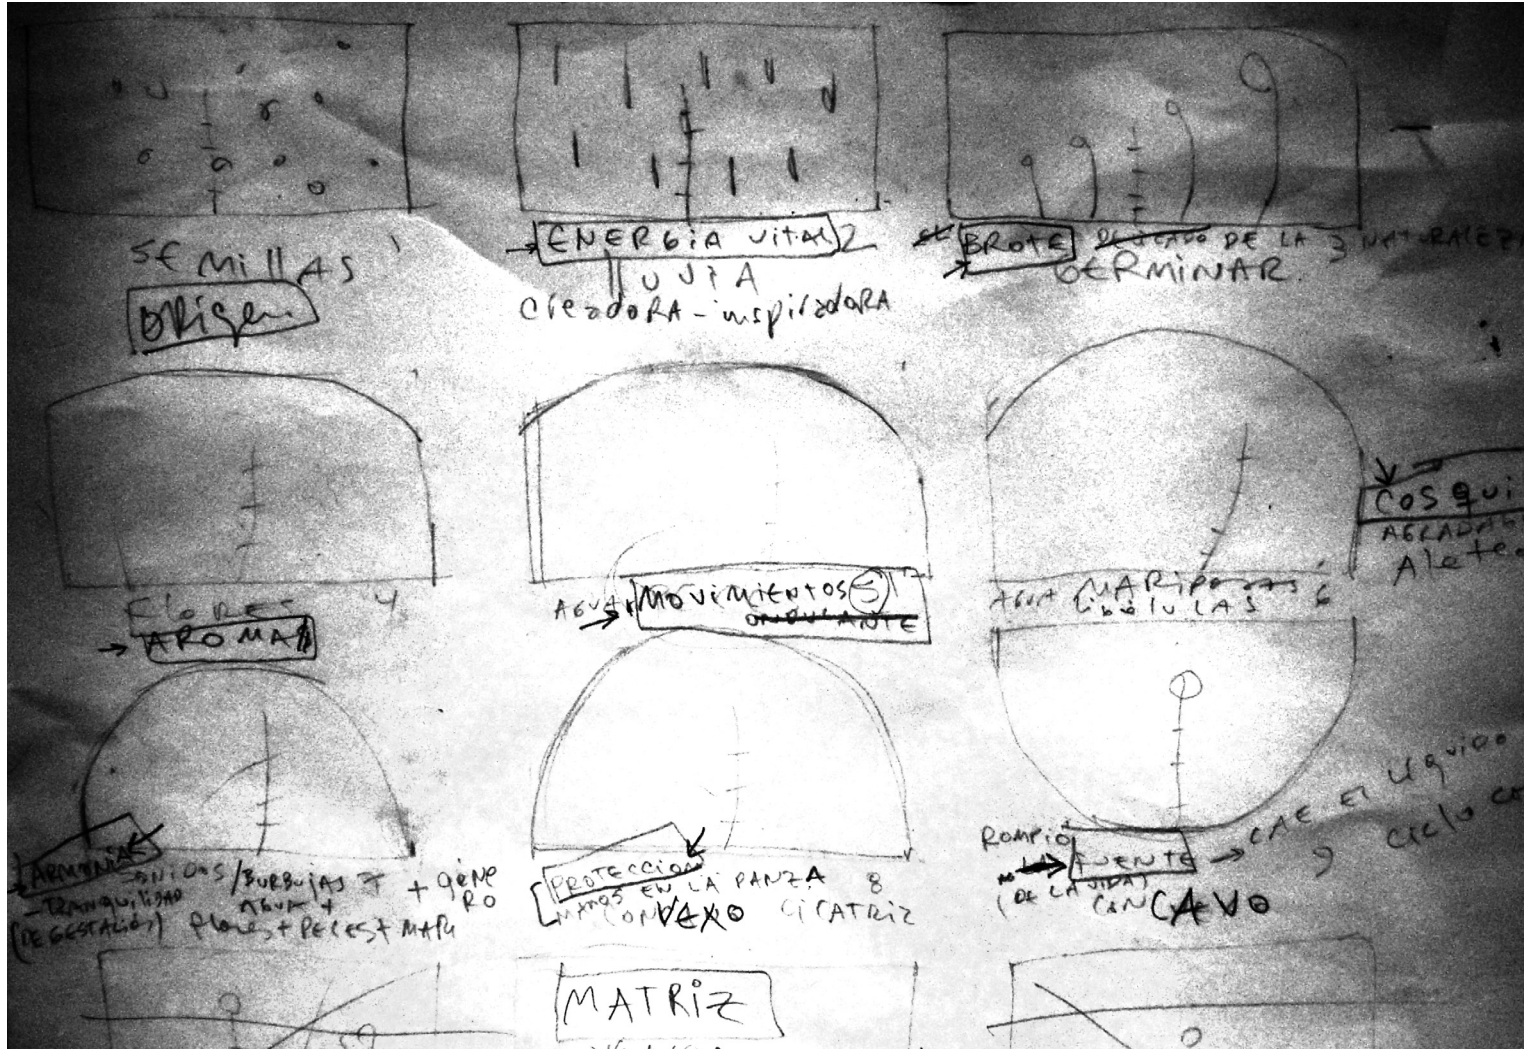 SEMillAS 1
ORigen
ENERGiA ViTAL 2
llUViA
CreadoRA - inspiradoRA
BROTE DE LA 3 NATURALEZA
GERMINAR
FLORES 4
AROMAS
AGUA MOViMiENTOS 5
ONDULANTE
AGUA MARiPOSAS 6
libélULAS
COSQUi
Alete
ARMONÍA
SONIDOS / BURBUJAS 7 + GÉNE
RO
- TRANQUILIDAD AGUA +
(DE GESTACIÓN) flores + PECES + MAPU
PROTECCION
MANOS EN LA PANZA 8
CONVEXO CiCATRiZ
ROMPIÓ
FUENTE → CAE El liquido
(DE LA VIDA) 9 CiClo
CONCAVO
MATRiZ